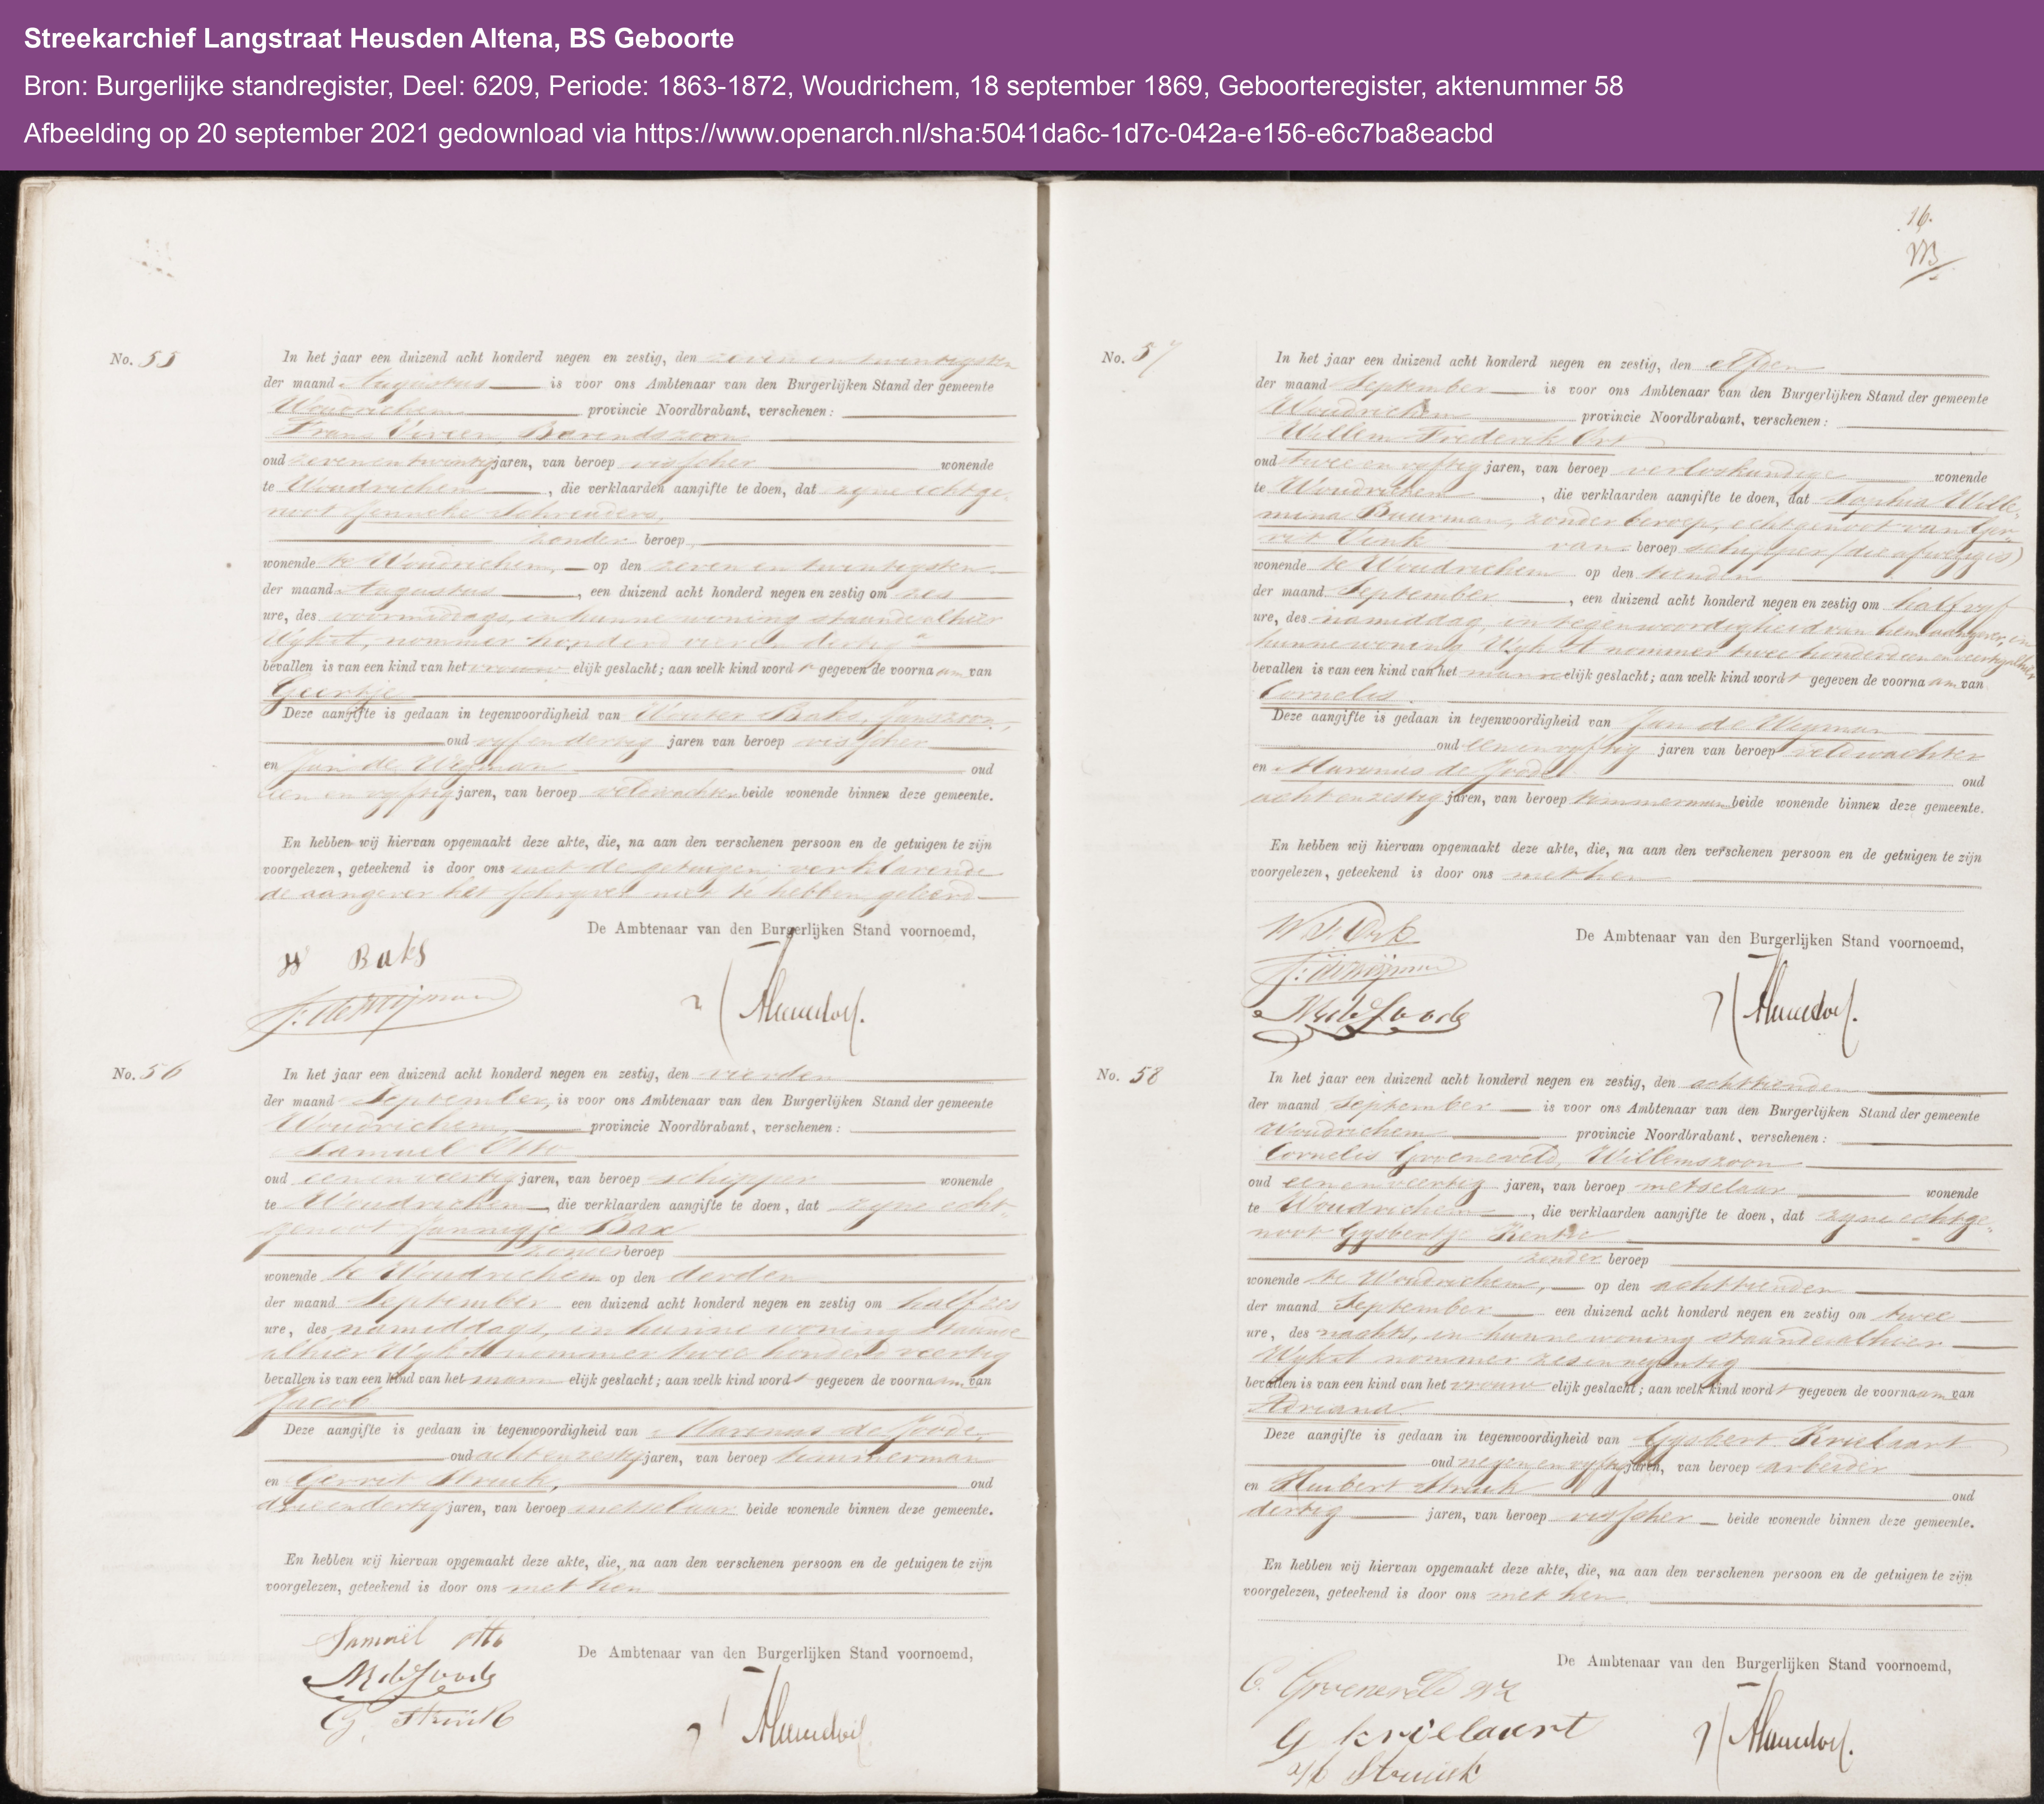 Streekarchief Langstraat Heusden Altena, BS Geboorte
Bron: Burgerlijke standregister, Deel: 6209, Periode: 1863-1872, Woudrichem, 18 september 1869, Geboorteregister, aktenummer 58
Afbeelding op 20 september 2021 gedownload via https://www.openarch.nl/sha:5041da6c-1d7c-042a-e156-e6c7ba8eacbd
No. 55
In het jaar een duizend acht honderd negen en zestig, den zeven en twintigsten
der maand Augustus is voor ons Ambtenaar van den Burgerlijken Stand der gemeente
Woudrichem provincie Noordbrabant, verschenen:
Frans Vireen, Barendszoon
oud zevenentwintig jaren, van beroep visscher wonende
te Woudrichem, die verklaarden aangifte te doen, dat zyne echtge-
noot Jenneke Schreuders,
zonder beroep
wonende te Woudrichem, op den zeven en twintigsten
der maand Augustus, een duizend acht honderd negen en zestig om zes
ure, des voormiddags, in hunne woning staande alhier
Wyk A, nommer honderd vier en dertig
bevallen is van een kind van het vrouwelijk geslacht; aan welk kind wordt gegeven de voornaam van
Geertje
Deze aangifte is gedaan in tegenwoordigheid van Wouter Baks, Janszoon,
oud vyf en dertig jaren van beroep visscher
en Jan de Weyman oud
een en vyftig jaren, van beroep veldwachter beide wonende binnen deze gemeente.
En hebben wij hiervan opgemaakt deze akte, die, na aan den verschenen persoon en de getuigen te zijn
voorgelezen, geteekend is door ons met de getuigen, verklarende
de aangever het schryven niet te hebben geleerd
De Ambtenaar van den Burgerlijken Stand voornoemd,
W Baks
J: de Weijman
No. 56
In het jaar een duizend acht honderd negen en zestig, den vierden
der maand September, is voor ons Ambtenaar van den Burgerlijken Stand der gemeente
Woudrichem, provincie Noordbrabant, verschenen:
Samuel Otto
oud een en veertig jaren, van beroep schipper wonende
te Woudrichem, die verklaarden aangifte te doen, dat zyne echt-
genoot Jannigje Bax
zonder beroep
wonende te Woudrichem op den derden
der maand September een duizend acht honderd negen en zestig om half zes
ure, des namiddags, in hunne woning staande
alhier Wyk A nommer twee honderd veertig
bevallen is van een kind van het mannelijk geslacht; aan welk kind wordt gegeven de voornaam van
Jacob
Deze aangifte is gedaan in tegenwoordigheid van Marinus de Joode,
oud acht en zestig jaren, van beroep timmerman
en Gerrit Struik, oud
drie en dertig jaren, van beroep metselaar beide wonende binnen deze gemeente.
En hebben wij hiervan opgemaakt deze akte, die, na aan den verschenen persoon en de getuigen te zijn
voorgelezen, geteekend is door ons met hen
De Ambtenaar van den Burgerlijken Stand voornoemd,
Samuël Otto
M de Joode
G. Struik
16.
No. 57
In het jaar een duizend acht honderd negen en zestig, den elfden
der maand September is voor ons Ambtenaar van den Burgerlijken Stand der gemeente
Woudrichem provincie Noordbrabant, verschenen:
Willem Frederik Ort
oud twee en vyftig jaren, van beroep verloskundige wonende
te Woudrichem, die verklaarden aangifte te doen, dat Sophia Wille-
mina Buurman, zonder beroep, echtgenoot van Ger-
rit Vink van beroep schipper (die afwezig is)
wonende te Woudrichem op den tienden
der maand September, een duizend acht honderd negen en zestig om half vyf
ure, des namiddag, in tegenwoordigheid van hem aangever, in
hunne woning Wyk A nommer twee honderd een en veertig alhier
bevallen is van een kind van het mannelijk geslacht; aan welk kind wordt gegeven de voornaam van
Cornelis
Deze aangifte is gedaan in tegenwoordigheid van Jan de Weyman
oud een en vyftig jaren van beroep veldwachter
en Marinus de Joode oud
acht en zestig jaren, van beroep timmerman beide wonende binnen deze gemeente.
En hebben wij hiervan opgemaakt deze akte, die, na aan den verschenen persoon en de getuigen te zijn
voorgelezen, geteekend is door ons met hen
De Ambtenaar van den Burgerlijken Stand voornoemd,
W. F. Ort
J: de Weijman
M de Joode
No. 58
In het jaar een duizend acht honderd negen en zestig, den achttienden
der maand September is voor ons Ambtenaar van den Burgerlijken Stand der gemeente
Woudrichem provincie Noordbrabant, verschenen:
Cornelis Groeneveld, Willemszoon
oud een en veertig jaren, van beroep metselaar wonende
te Woudrichem, die verklaarden aangifte te doen, dat zyne echtge-
noot Gysbertje
zonder beroep
wonende te Woudrichem, op den achttienden
der maand September een duizend acht honderd negen en zestig om twee
ure, des nachts, in hunne woning staande alhier
Wyk A nommer zes en negentig
bevallen is van een kind van het vrouwelijk geslacht; aan welk kind wordt gegeven de voornaam van
Adriana
Deze aangifte is gedaan in tegenwoordigheid van Gysbert Krielaart
oud negen en vyftig jaren, van beroep arbeider
en Huibert Struik oud
dertig jaren, van beroep visscher beide wonende binnen deze gemeente.
En hebben wij hiervan opgemaakt deze akte, die, na aan den verschenen persoon en de getuigen te zijn
voorgelezen, geteekend is door ons met hen
De Ambtenaar van den Burgerlijken Stand voornoemd,
C. Groeneveld WZ
G krielaart
Struik